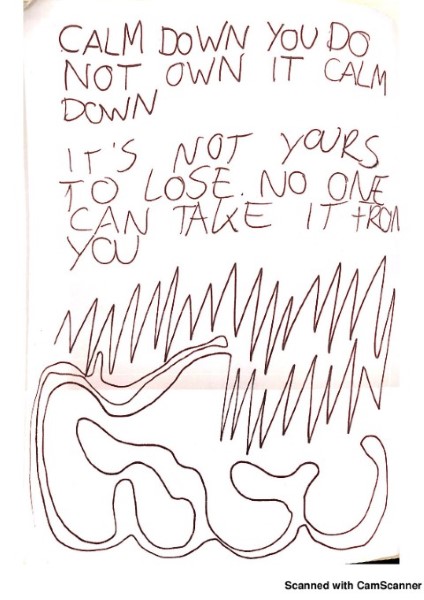 CALM DOWN YOU DO
NOT OWN IT CALM
DOWN
IT'S NOT YOURS
TO LOSE. NO ONE
CAN TAKE IT FROM
YOU
Scanned with CamScanner